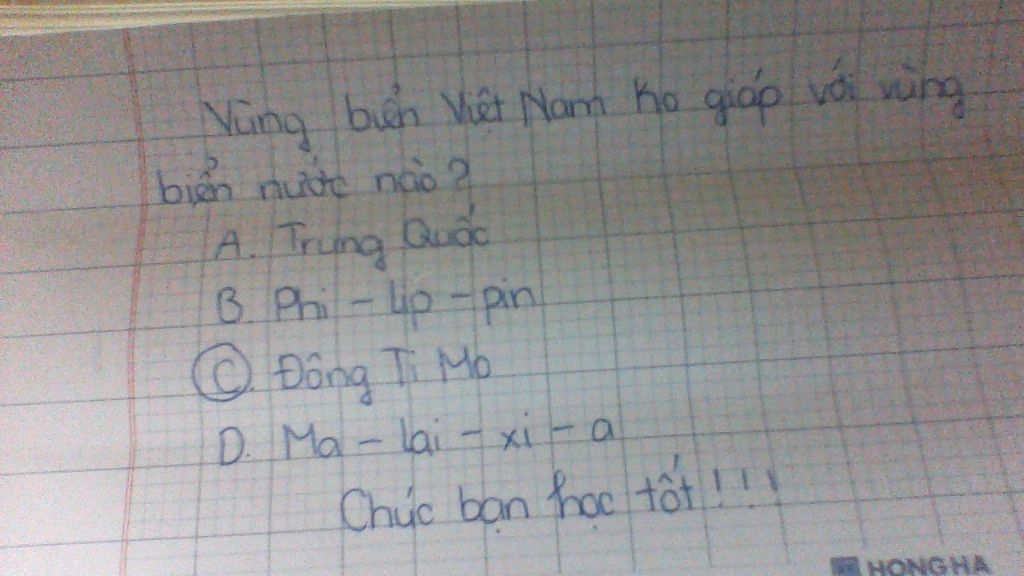 Vùng biển Việt Nam ko giáp với vùng
biển nước nào?
A. Trung Quốc
B. Phi - lip - pin
C. Đông Ti Mo
D. Ma - lai - xi - a
Chúc bạn học tốt!!!
HONG HA